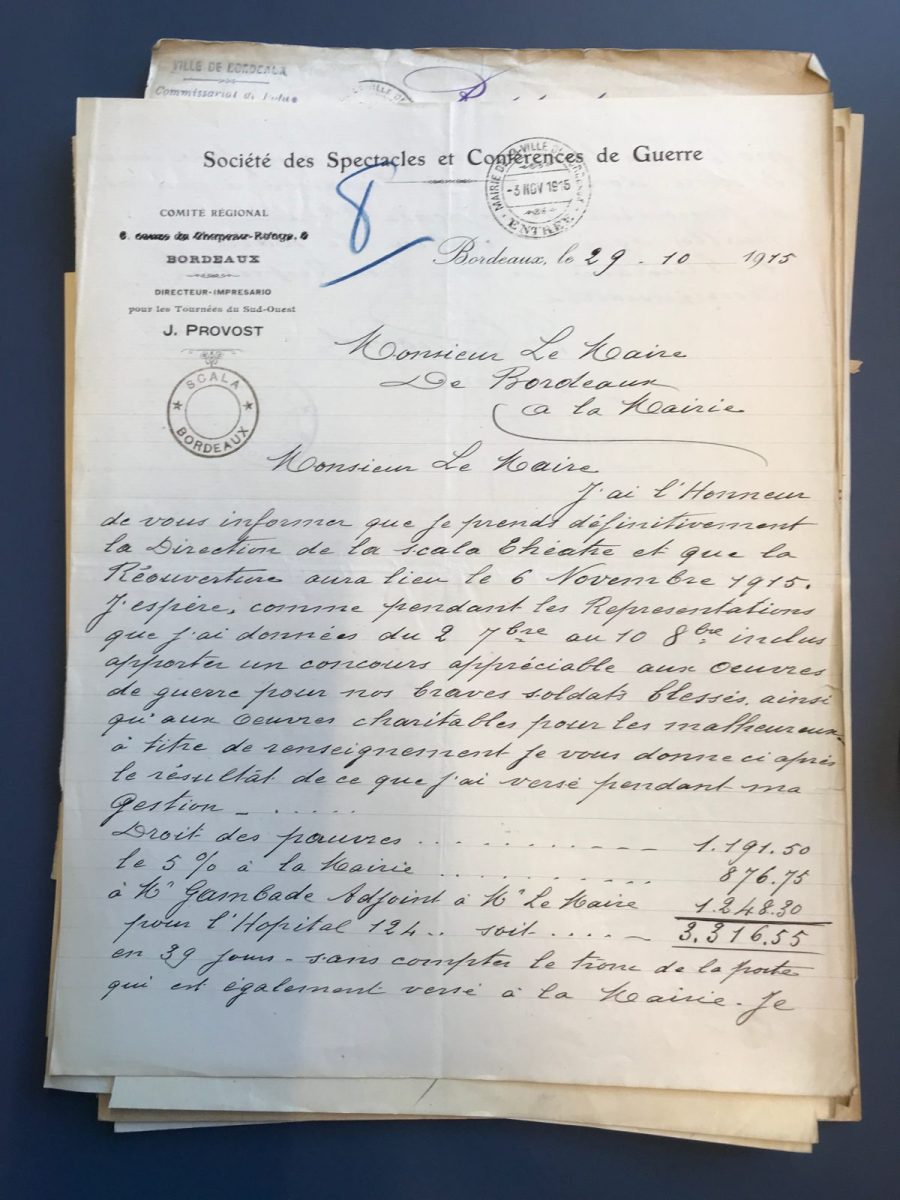 VILLE DE BORDEAUX
Commissariat de Police
Société des Spectacles et Conférences de Guerre
MAIRIE DE LA VILLE DE BORDEAUX
-3 NOV 1915
ENTRÉE
8
COMITÉ RÉGIONAL
6, cours du Chapeau-Rouge, 6
BORDEAUX
DIRECTEUR-IMPRESARIO
pour les Tournées du Sud-Ouest
J. PROVOST
SCALA
BORDEAUX
Bordeaux, le 29 - 10 1915
Monsieur Le Maire
De Bordeaux
a la Mairie
Monsieur Le Maire
J'ai l'Honneur
de vous informer que je prends définitivement
la Direction de la Scala Théatre et que la
Réouverture aura lieu le 6 Novembre 1915.
J'espère, comme pendant les Representations
que j'ai données du 2 7bre au 10 8bre inclus
apporter un concours appréciable aux Oeuvres
de guerre pour nos braves soldats blessés, ainsi
qu'aux Oeuvres charitables pour les malheureux-
à titre de renseignement je vous donne ci après
le résultat de ce que j'ai versé pendant ma
Gestion - . . . . .
Droit des pauvres . . . . . . . . . . 1.191.50
le 5 % à la Mairie . . . . . . . . . . . 876.75
à Mr Gambade Adjoint à Mr Le Maire 1.248.30
pour l'Hopital 124 .. soit . . . . - 3.316.55
en 39 jours - sans compter le tronc de la porte
qui est également versé à la Mairie - Je